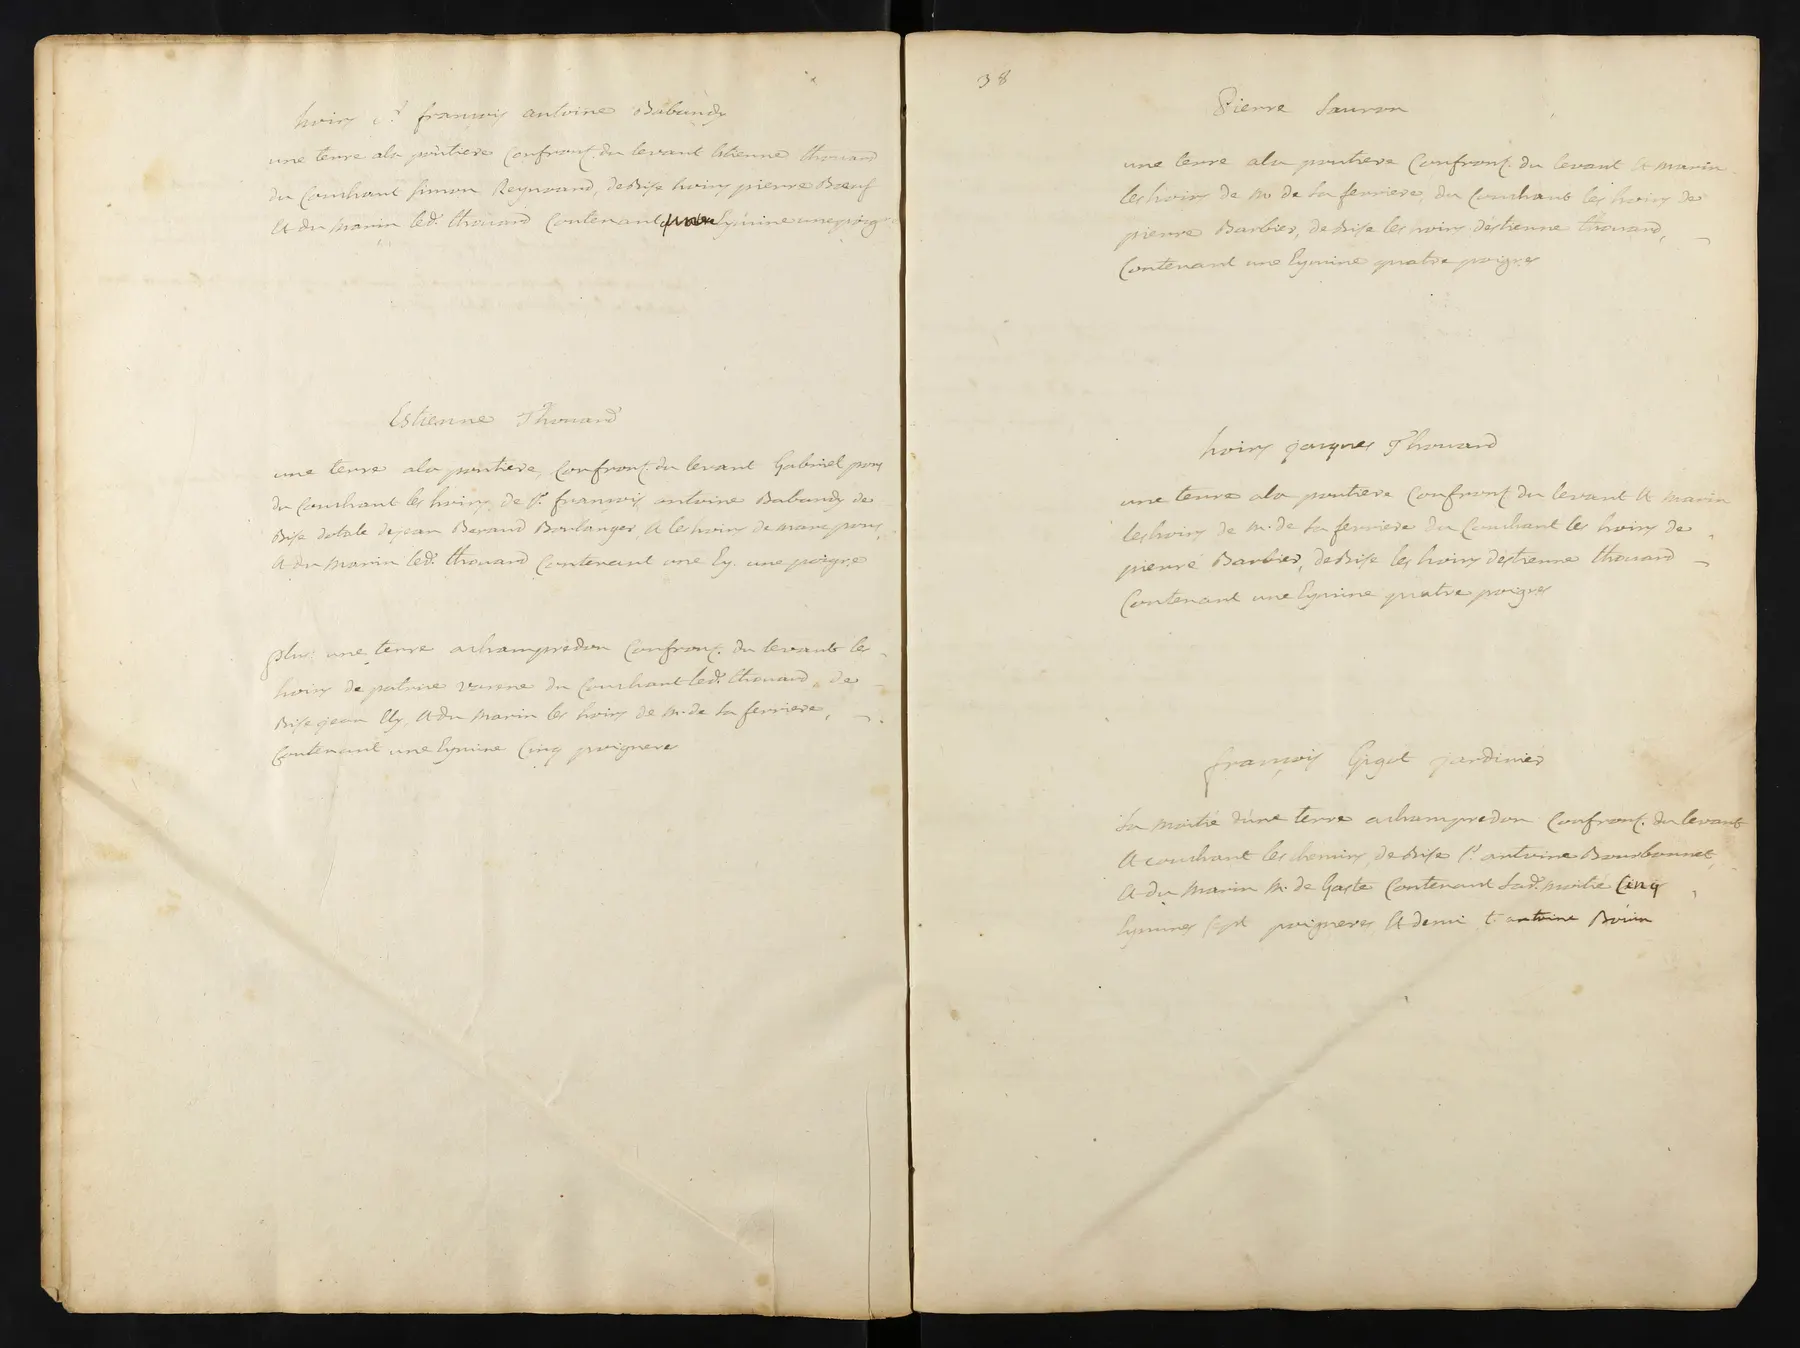 hoirs Sr. françois antoine Babandy
une terre ala poutiere Confront. du levant Etienne thouard
du Couchant simon Reynoard, de Bise hoirs pierre Boeuf
et du marin led. thouard Contenant Eymine une poig
Estienne Thouard
une terre ala poutiere, Confront. du levant Gabriel pons
du Couchant les hoirs de Sr. françois antoine Babandy de
Bise dotale de jean Beraud Boulanger, et les hoirs de marc pons,
et du marin led. thouard Contenant une Ey. une poigre
plus une terre achampredon Confront. du levant les
hoirs de patrice du Couchant led. thouard, de
Bise jean Ely, et du marin les hoirs de mr. de la ferriere,
Contenant une Eymine Cinq poigneres
38
Pierre Lauron
une terre ala poutiere Confront. du levant et marin
les hoirs de mr de la ferriere, du Couchant les hoirs de
pierre Barbier, de Bise les hoirs destienne thouard,
Contenant une Eymine quatre poigres
hoirs jacques Thouard
une terre ala poutiere Confront du levant et marin
les hoirs de mr. de la ferriere du Couchant les hoirs de
pierre Barbier, de Bise les hoirs destienne thouard
Contenant une Eymine quatre poigres
françois Gigot jardinier
La moitié dúne terre achampredon Confront. du levant
et couchant les chemins, de Bise Sr. antoine Bourbonnet,
et du marin mr. de Gaste Contenant lad. moitié Cinq
Eymines sept poigneres et demi t. antoine Boüin